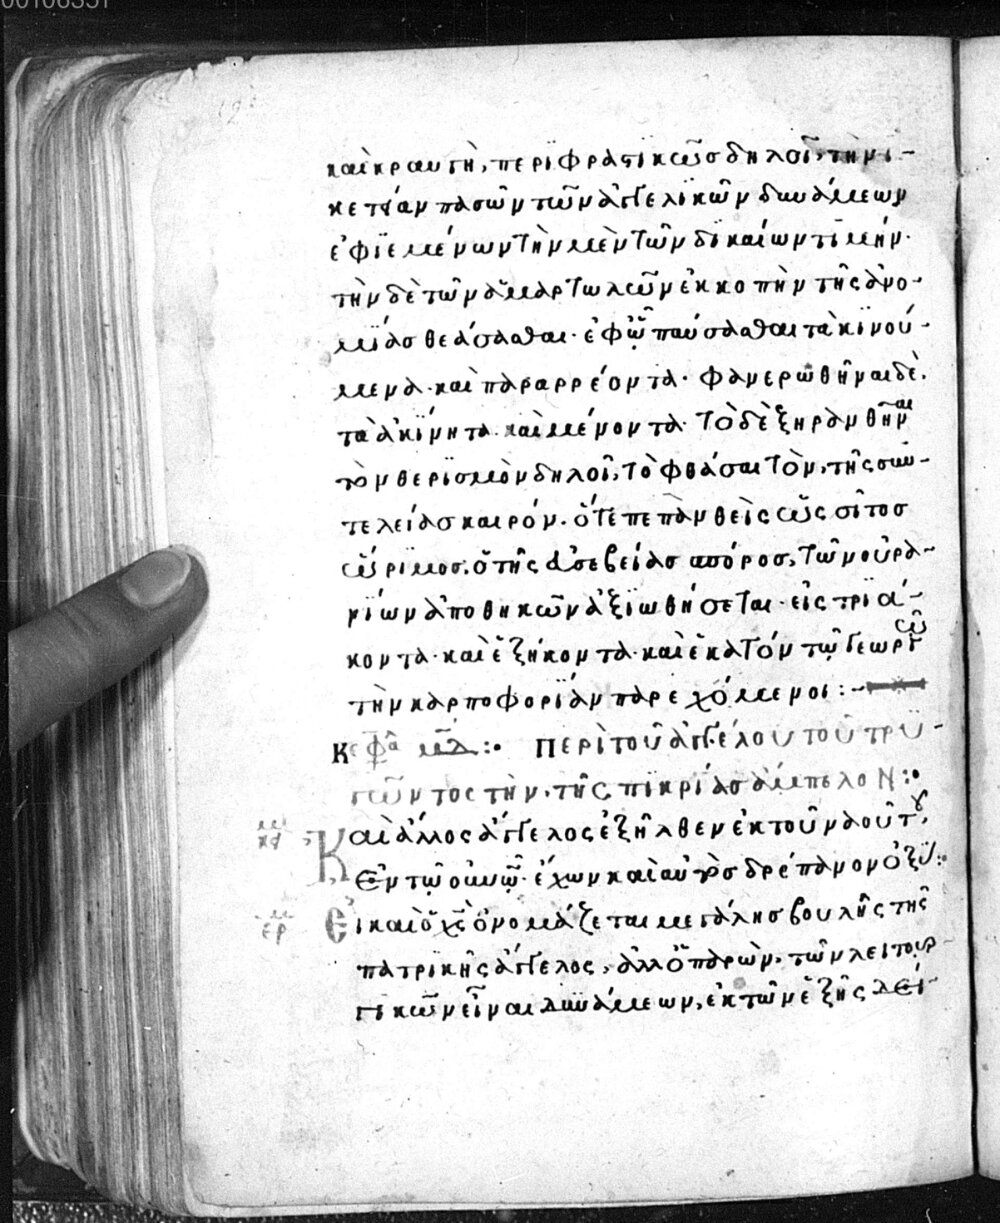 00106351
καὶ κραυγὴ, περιφραστικῶς δηλοῖ, τὴν ἱ-
κετείαν πασῶν τῶν ἀγγελϊκῶν δυνάμεων
ἐφϊεμένων τὴν μὲν τῶν δϊκαίων τϊμήν·
τὴν δὲ τῶν ἁμαρτωλῶν ἐκκοπὴν τῆς ἀνο-
μΐας θεάσασθαι· ἐφῷ παύσασθαι τὰ κϊνού-
μενα· καὶ παραρρέοντα· φανερωθῆναι δὲ,
τὰ ἀκΐνητα· καὶ μένοντα· τὸ δὲ ξηρανθῆναι
τὸν θερϊσμὸν δηλοῖ, τὸ φθάσαι τὸν, τῆς συν-
τελείας καιρόν· ὅτε πεπανθεὶς ὡς σῖτος
ὥριμος, ὁ τῆς εὐσεβείας σπόρος, τῶν οὐρα-
νίων ἀποθηκῶν ἀξϊωθήσεται· εἰς τρϊά-
κοντα· καὶ ἑξήκοντα· καὶ ἑκατὸν τῷ γεωργῷ
τὴν καρποφορΐαν παρεχόμενοι :-
Κεφα μδ :· Περὶ τοῦ ἀγγέλου τοῦ τρυ-
γῶντος τὴν, τῆς πϊκρίας ἄμπελον :·
κει Καὶ ἄλλος ἄγγελος ἐξῆλθεν ἐκ τοῦ ναοῦ τοῦ
Ἐν τῷ οὐνῷ· ἔχων καὶ αὐτὸς δρέπανον ὀξύ :·
ερμ Εἰ καὶ ὁ χς ὀνομάζεται μεγάλης βουλῆς τῆς
πατρϊκῆς ἄγγελος, ἀλλ' ὁ παρὼν, τῶν λειτουρ-
γικῶν εἶναι δυνάμεων, ἐκ τῶν ἑξῆς λεί-